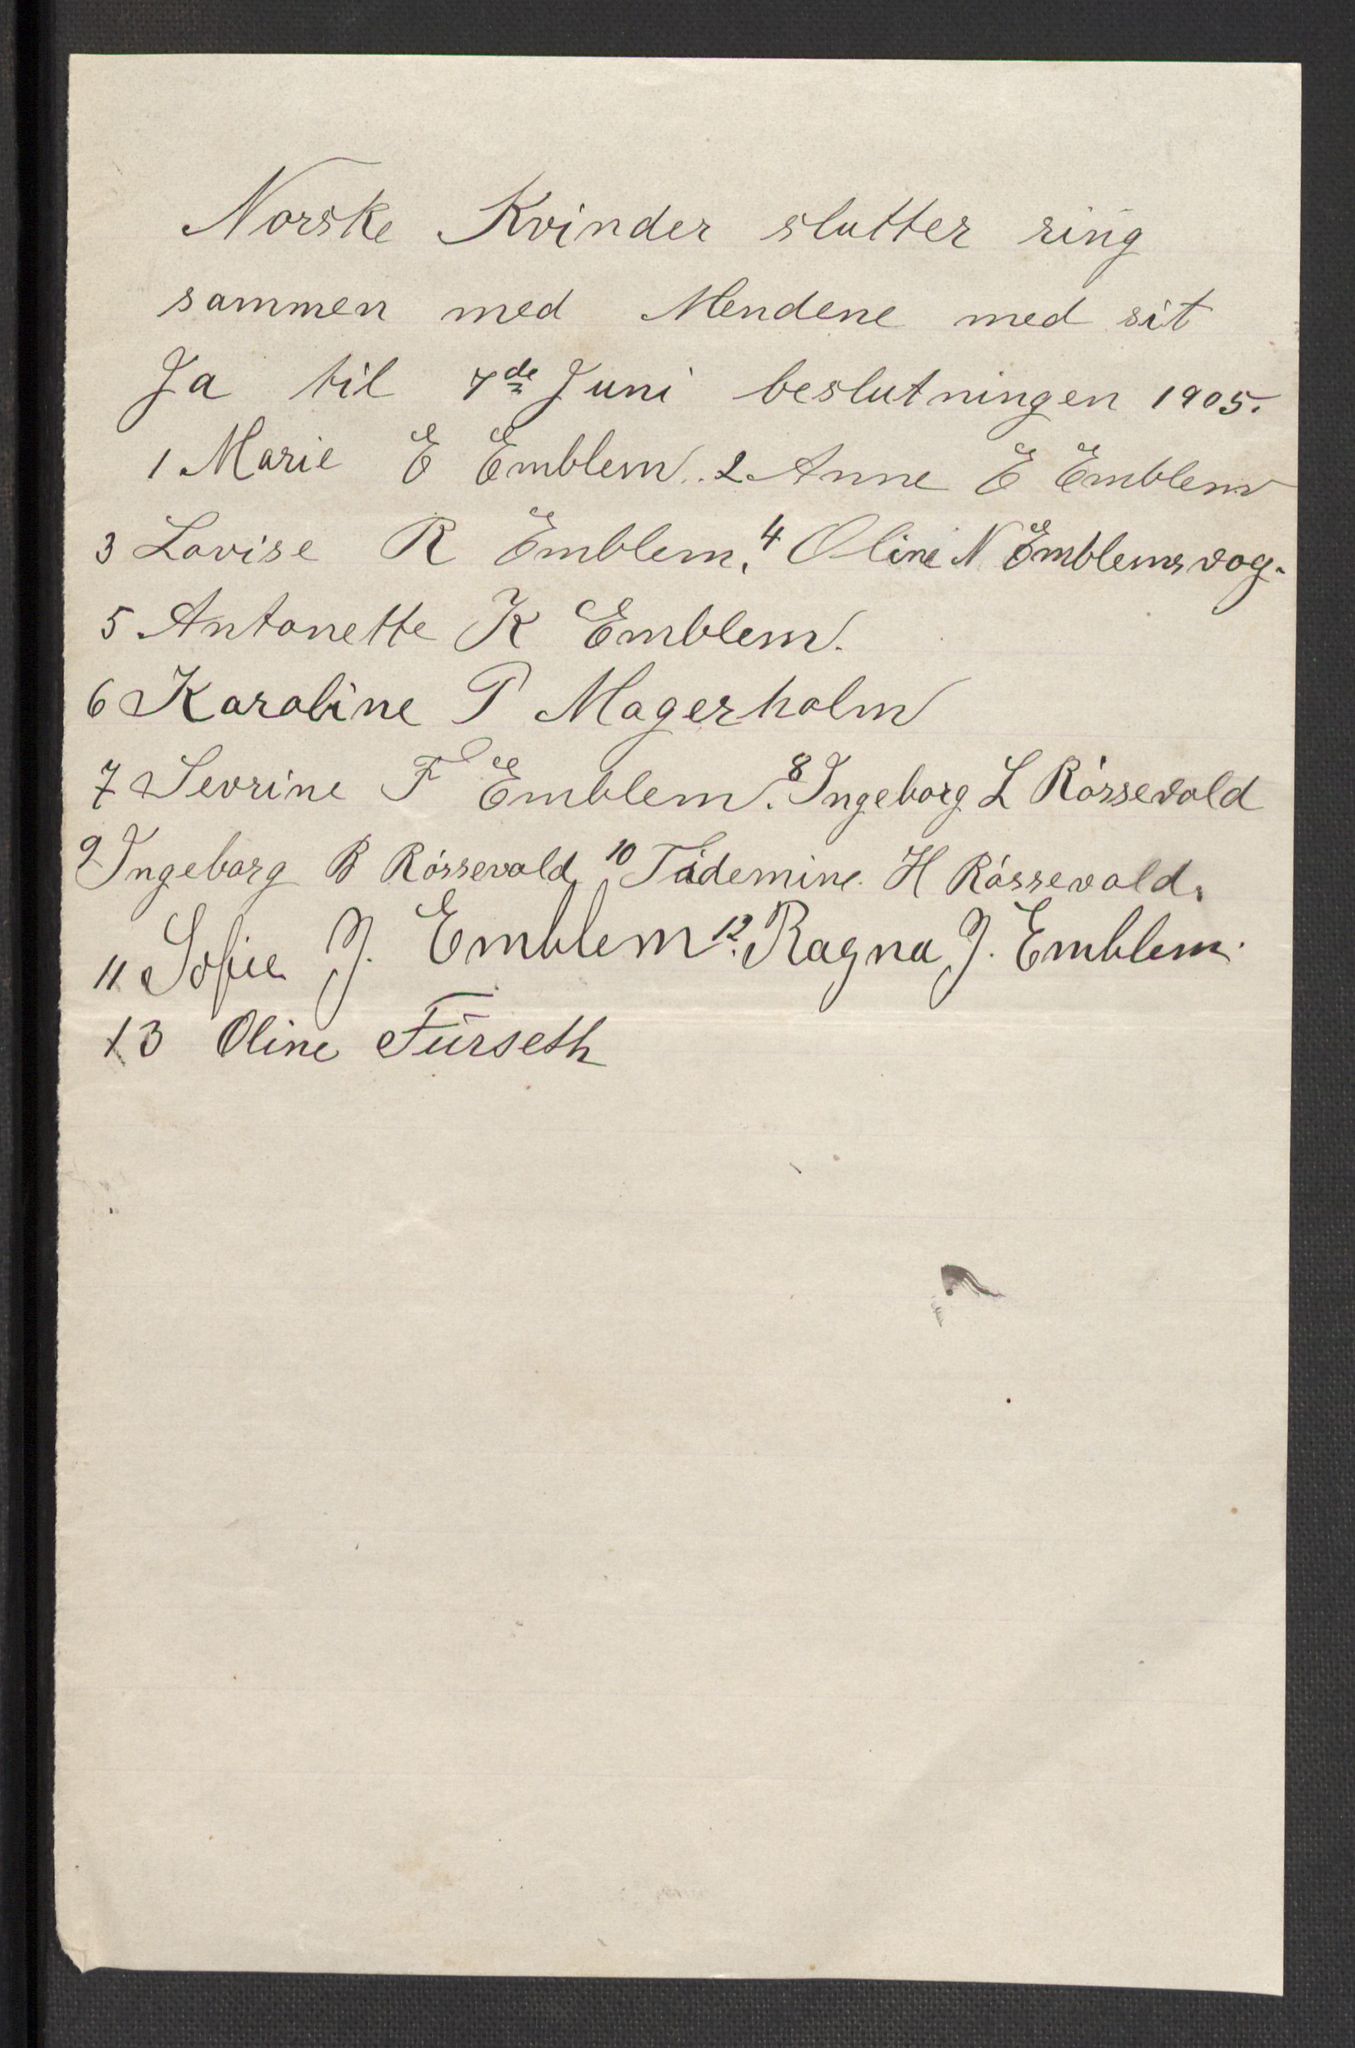 Norske Kvinder slutter ring
sammen med Mendene med sit
Ja til 7de Juni beslutningen 1905.
1 Marie E Emblem. 2 Anne E Emblem
3 Lovise R Emblem. 4 Oline N Emblemsvog.
5 Antonette K Emblem.
6 Karoline P Magerholm
7 Sevrine F Emblem. 8 Ingeborg L Róssevold
9 Ingeborg B Róssevold 10 Tidemine H Róssevold.
11 Sofie J. Emblem 12. Ragna J. Emblem.
13 Oline Furseth